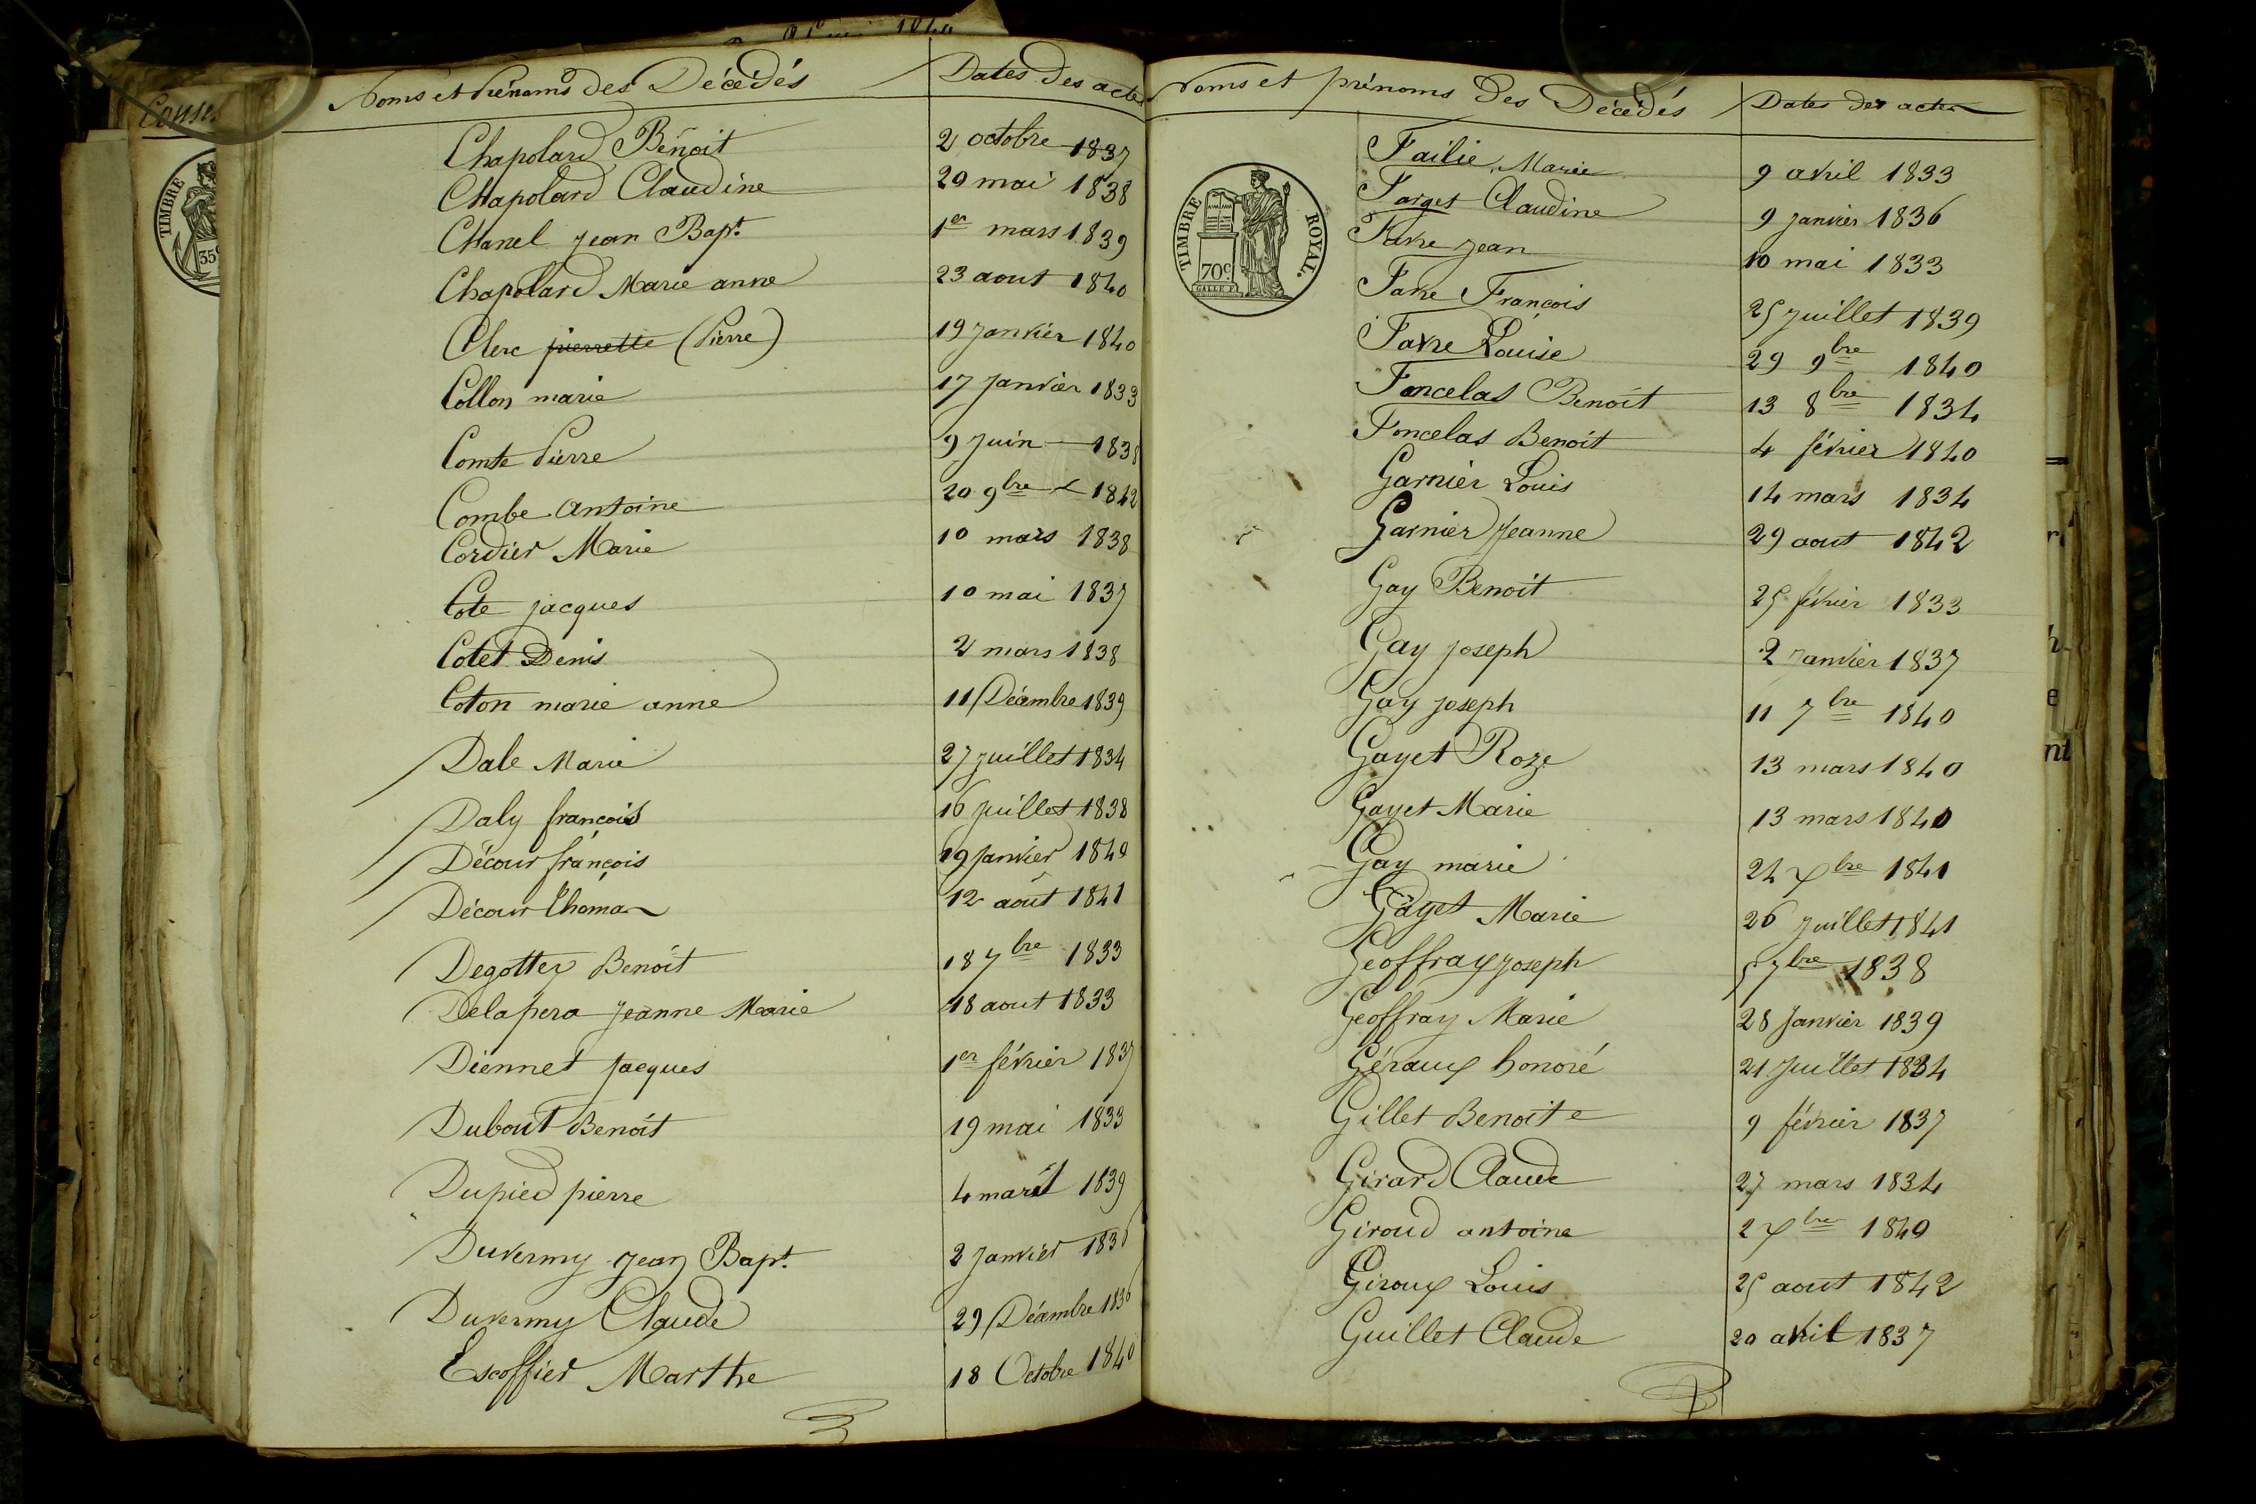 Noms et Prénoms des Décédés Dates des actes
Chapolard Benoit 2 octobre 1837
Chapolard Claudine 29 mai 1838
Chanel jean Bapt. 1er mars 1839
Chapolard Marie anne 23 aout 1840
Clerc pierrette (Pierre) 19 Janvier 1840
Collon marie 17 Janvier 1833
Comte Pierre 9 Juin 1838
Combe Antoine 20 9bre 1842
Cordier Marie 10 mars 1838
Cote jacques 10 mai 1837
Cotet Denis 2 mars 1838
Coton marie anne 11 Décembre 1839
Dale Marie 27 juillet 1834
Daly françois 16 juillet 1838
Décour françois 19 Janvier 1840
Décour Thomas 12 août 1841
Degottez Benoit 18 7bre 1833
Delapera Jeanne Marie 18 aout 1833
Diennet Jacques 1er février 1837
Dubout Benoit 19 mai 1833
Dupied pierre 4 1839
Duvermy Jean Bapt. 2 Janvier 1836
Duvermy Claude 29 Décembre 1836
Escoffier Marthe 18 Octobre 1840
Noms et prénoms des Décédés Dates des actes
TIMBRE ROYAL.
70c
Failie Marie 9 avril 1833
Farget Claudine 9 janvier 1836
Favre Jean 10 mai 1833
Favre François 25 juillet 1839
Favre Louise 29 9bre 1840
Foncelas Benoit 13 8bre 1834
Foncelas Benoit 4 février 1840
Garnier Louis 14 mars 1834
Garnier Jeanne 29 aout 1842
Gay Benoit 25 février 1833
Gay joseph 2 Janvier 1837
Gay joseph 11 7bre 1840
Gayet Roze 13 mars 1840
Gayet Marie 13 mars 1840
Gay marie 24 Xbre 1841
Gayet Marie 26 juillet 1841
Geoffray joseph 5 7bre 1838
Geoffray Marie 28 Janvier 1839
Géraux honoré 21 Juillet 1834
Gillet Benoite 9 février 1837
Girard Claude 27 mars 1834
Giroud antoine 2 Xbre 1840
Giroux Louis 25 aout 1842
Guillet Claude 20 avril 1837
TIMBRE